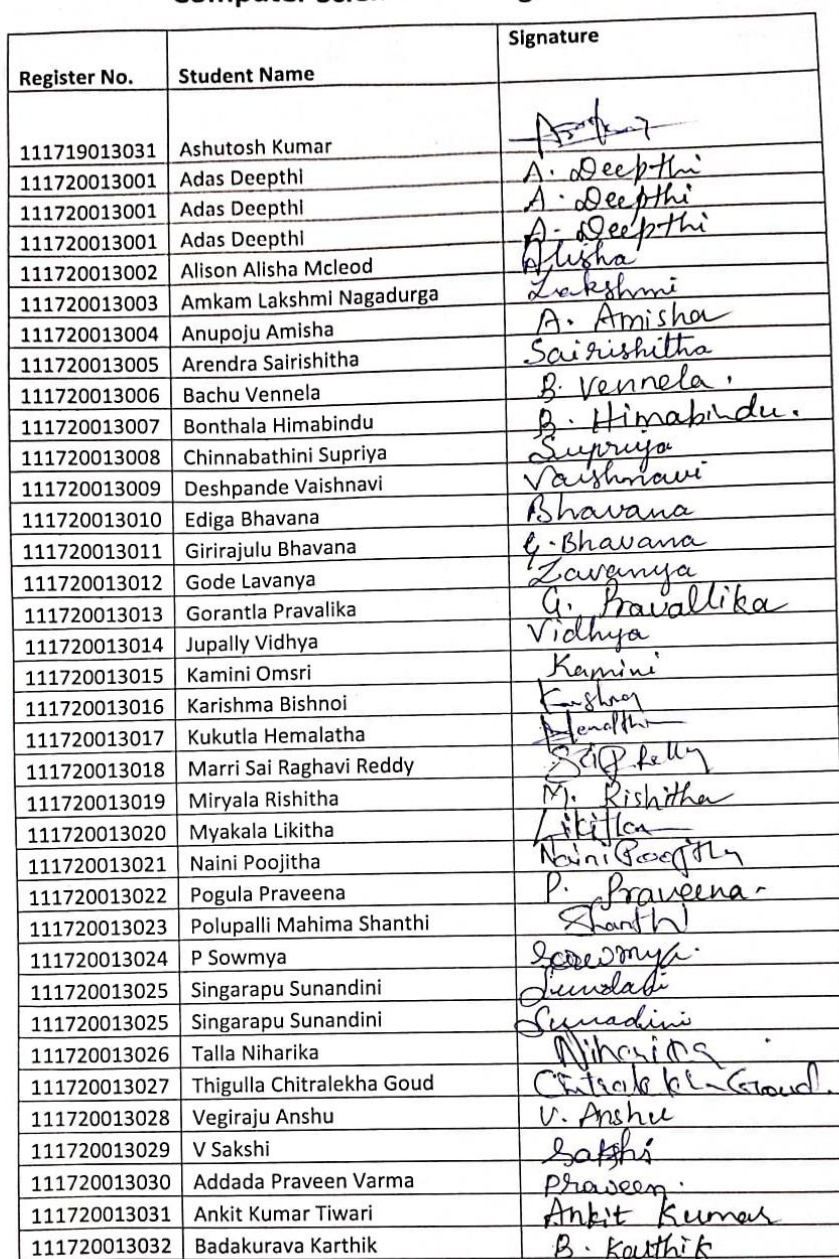 Register No. Student Name Signature
111719013031 Ashutosh Kumar
111720013001 Adas Deepthi A. Deepthi
111720013001 Adas Deepthi A. Deepthi
111720013001 Adas Deepthi A. Deepthi
111720013002 Alison Alisha Mcleod Alisha
111720013003 Amkam Lakshmi Nagadurga Lakshmi
111720013004 Anupoju Amisha A. Amisha
111720013005 Arendra Sairishitha Sairishitha
111720013006 Bachu Vennela B. Vennela.
111720013007 Bonthala Himabindu B. Himabindu.
111720013008 Chinnabathini Supriya Supriya
111720013009 Deshpande Vaishnavi Vaishnavi
111720013010 Ediga Bhavana Bhavana
111720013011 Girirajulu Bhavana G. Bhavana
111720013012 Gode Lavanya Lavanya
111720013013 Gorantla Pravalika G. Pravallika
111720013014 Jupally Vidhya Vidhya
111720013015 Kamini Omsri Kamini
111720013016 Karishma Bishnoi
111720013017 Kukutla Hemalatha
111720013018 Marri Sai Raghavi Reddy
111720013019 Miryala Rishitha M. Rishitha
111720013020 Myakala Likitha Likitha
111720013021 Naini Poojitha Naini Poojitha
111720013022 Pogula Praveena P. Praveena
111720013023 Polupalli Mahima Shanthi Shanthi
111720013024 P Sowmya Sowmya.
111720013025 Singarapu Sunandini
111720013025 Singarapu Sunandini Sunadini
111720013026 Talla Niharika Niharika
111720013027 Thigulla Chitralekha Goud Chitralekha Goud.
111720013028 Vegiraju Anshu V. Anshu
111720013029 V Sakshi Sakshi
111720013030 Addada Praveen Varma Praveen.
111720013031 Ankit Kumar Tiwari Ankit Kumar
111720013032 Badakurava Karthik B. Karthik